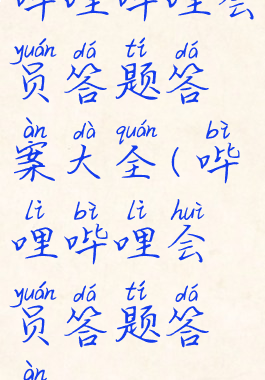 哔哩哔哩会
yuán dá tí dá
员答题答
àn dà quán bì
案大全(哔
lǐ bì lǐ huì
哩哔哩会
yuán dá tí dá
员答题答
àn